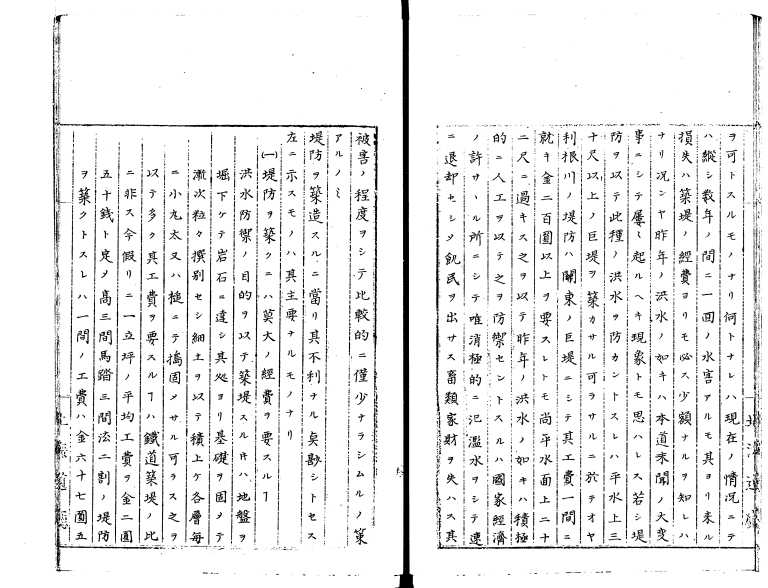 ヲ可トスルモノナリ何トナレハ現在ノ情况ニテ
ハ縱シ数年ノ間ニ一回ノ水害アルモ其ヨリ来ル
損失ハ築堤ノ經費ヨリモ必ス少額ナルヲ知レハ
ナリ况ンヤ昨年ノ洪水ノ如キハ本道未聞ノ大変
事ニシテ屢〻起ルヘキ現象トモ思ハレス若シ堤
防ヲ以テ此種ノ洪水ヲ防カントスレハ平水上三
十尺以上ノ巨堤ヲ築カサル可ラサルニ於テオヤ
利根川ノ堤防ハ關東ノ巨堤ニシテ其工費一間ニ
就キ金二百圓以上ヲ要スレトモ尚平水面上二十
二尺ニ過キス之ヲ以テ昨年ノ洪水ノ如キハ積極
的ニ人工ヲ以テ之ヲ防禦セントスルハ國家經濟
ノ許サヽル所ニシテ唯消極的ニ氾濫水ヲシテ速
ニ退却セシメ飢民ヲ出サス畜類家財ヲ失ハス其
被害ノ程度ヲシテ比較的ニ僅少ナラシムルノ策
アルノミ
堤防ヲ築造スルニ當リ其不利ナル点尠シトセス
左ニ示スモノハ其主要ナルモノナリ
(一)堤防ヲ築クニハ莫大ノ經費ヲ要スルヿ
洪水防禦ノ目的ヲ以テ築堤スル片ハ地盤ヲ
堀下ケテ岩石ニ達シ其処ヨリ基礎ヲ固メテ
漸次粒々撰別セシ細土ヲ以テ積上ケ各層毎
ニ小丸太又ハ槌ニテ搗固メサル可ラス之ヲ
以テ多ク其工費ヲ要スルヿハ鐵道築堤ノ比
ニ非ス今假リニ一立坪ノ平均工費ヲ金二圓
五十錢ト定メ高三間馬踏三間法二割ノ堤防
ヲ築クトスレハ一間ノ工費ハ金六十七圓五